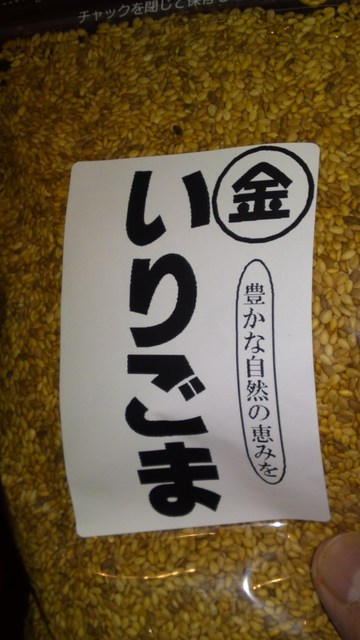 チャックを閉じて保存
金
豊かな自然の恵みを
いりごま